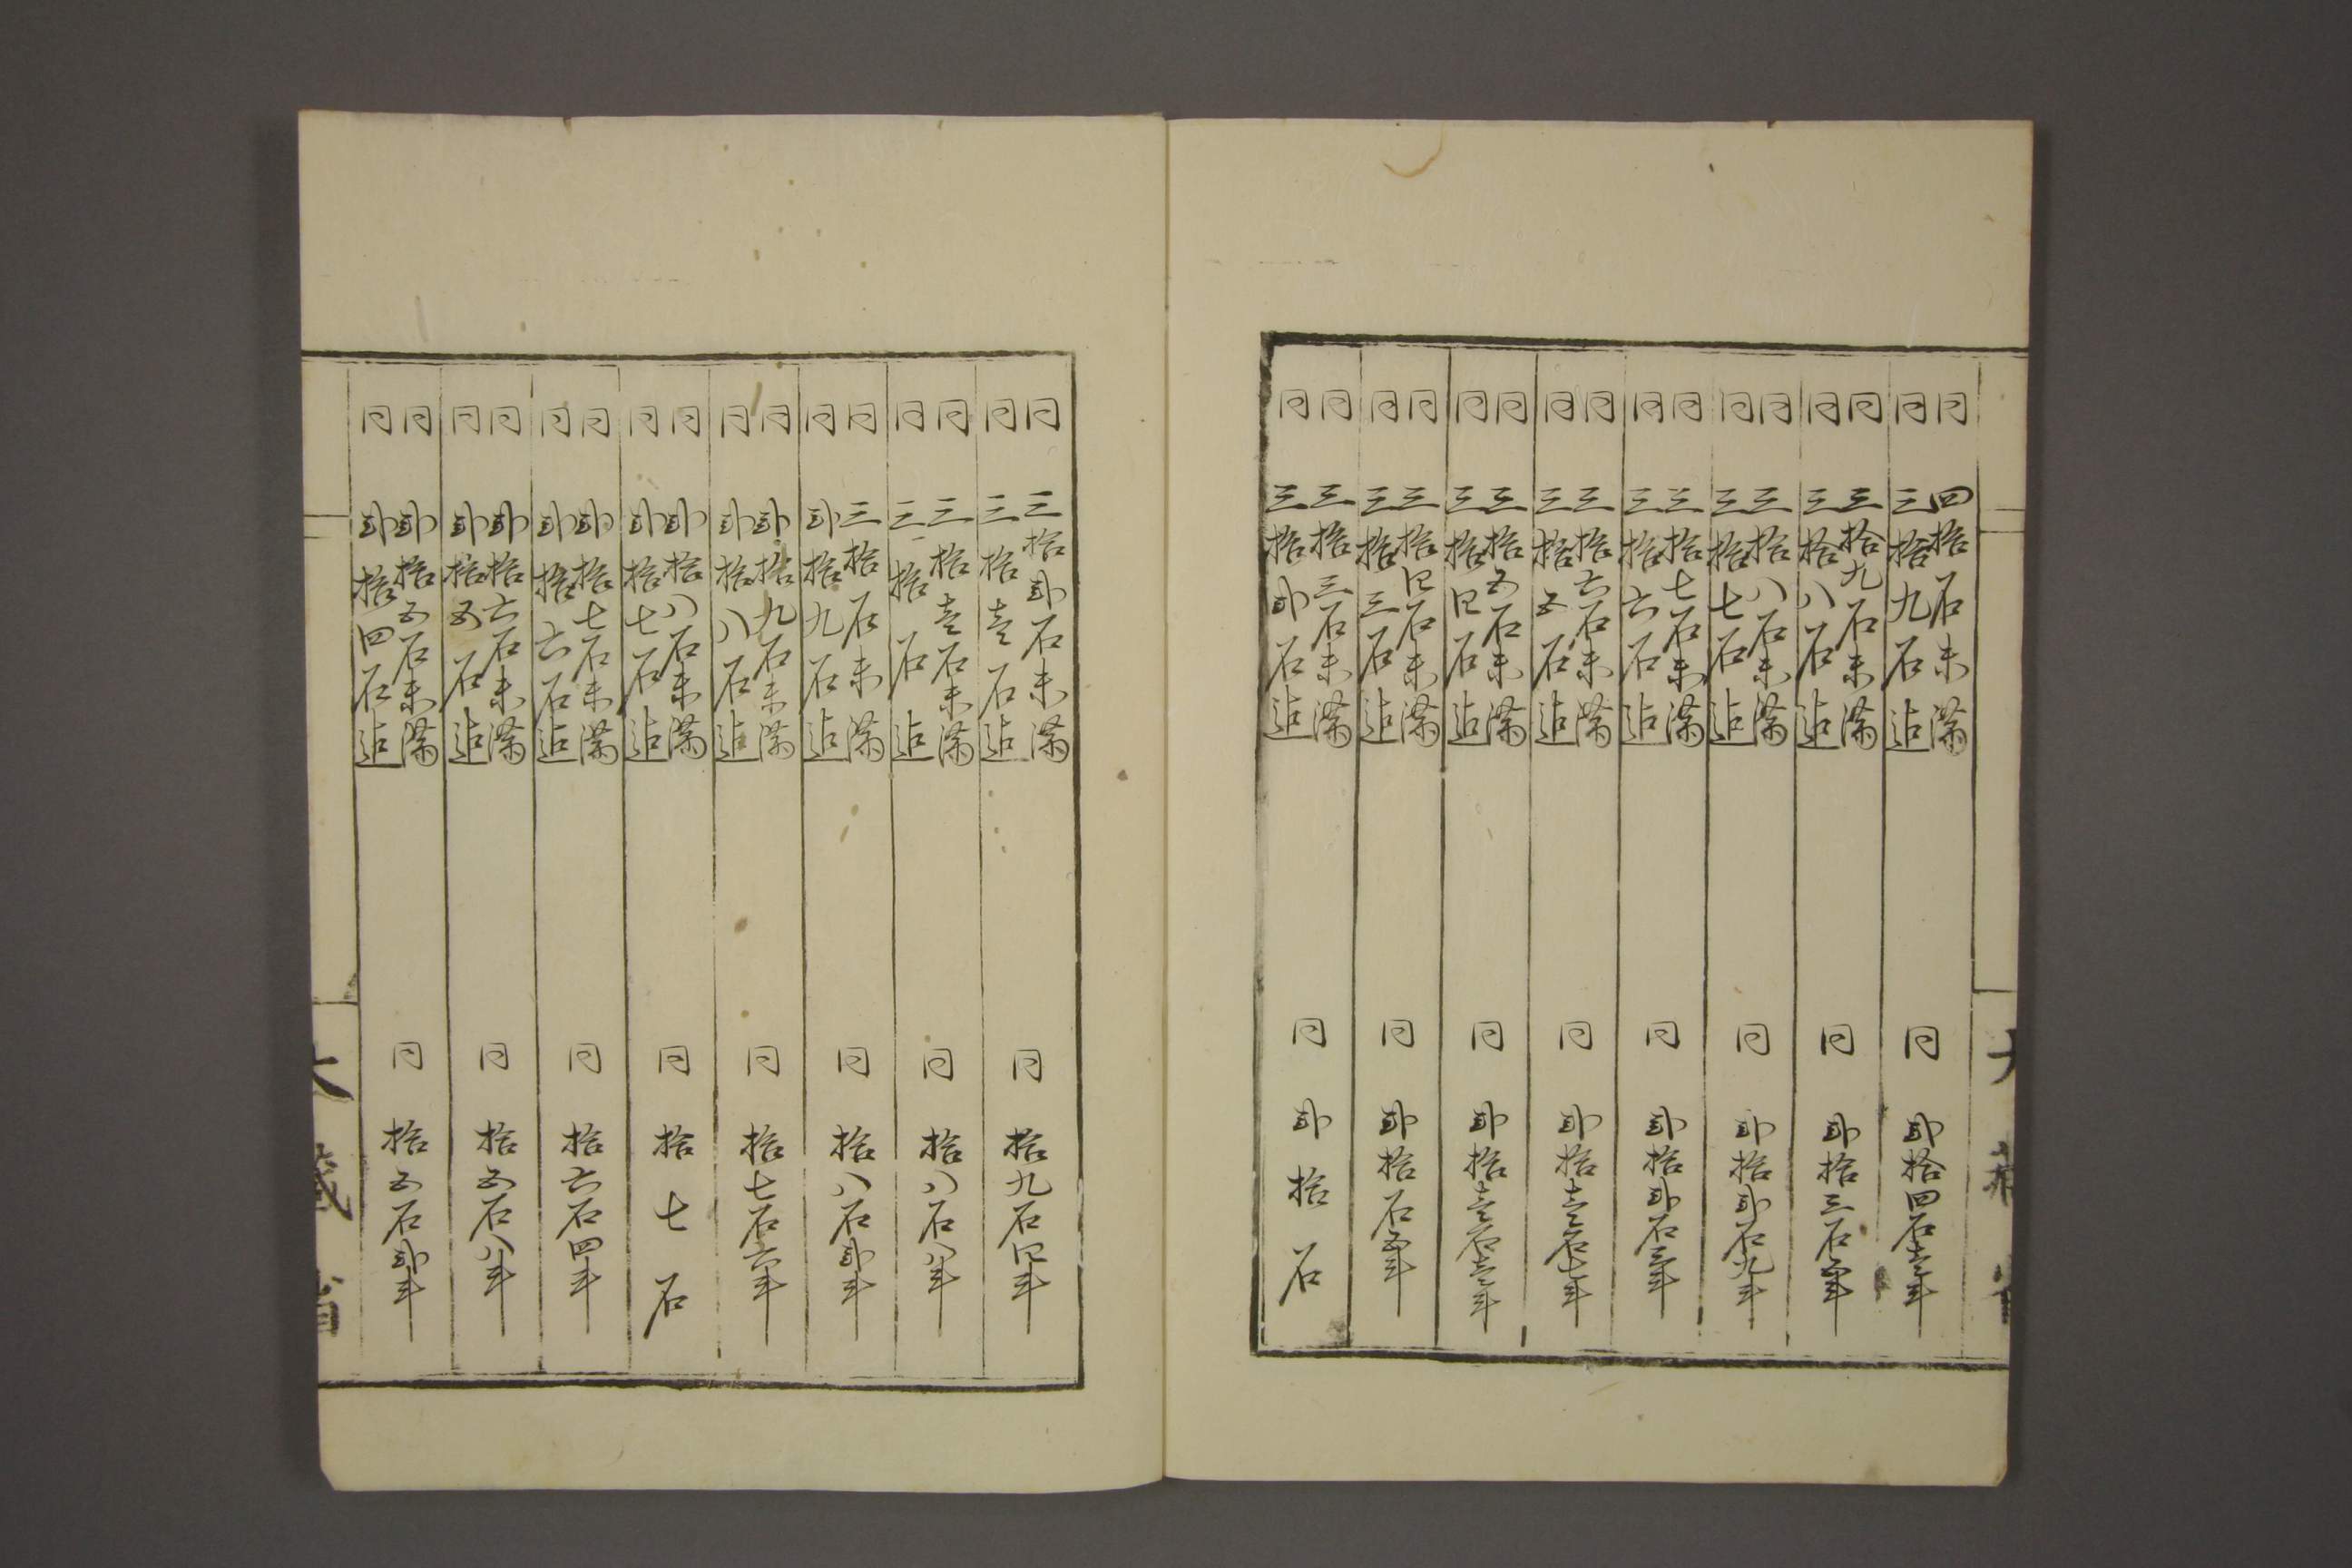 同　四拾石未満
同　三拾九石迠
同　弐拾四石壱斗
同　三拾九石未満
同　三拾八石迠
同　弐拾三石五斗
同　三拾八石未満
同　三拾七石迠
同　弐拾弐石九斗
同　三拾七石未満
同　三拾六石迠
同　弐拾弐石三斗
同　三拾六石未満
同　三拾五石迠
同　弐拾壱石七斗
同　三拾五石未満
同　三拾四石迠
同　弐拾壱石壱斗
同　三拾四石未満
同　三拾三石迠
同　弐拾石五斗
同　三拾三石未満
同　三拾弐石迠
同　弐拾石
同　三拾弐石未満
同　三拾壱石迠
同　拾九石四斗
同　三拾壱石未満
同　三拾石迠
同　拾八石八斗
同　三拾石未満
同　弐拾九石迠
同　拾八石弐斗
同　弐拾九石未満
同　弐拾八石迠
同　拾七石六斗
同　弐拾八石未満
同　弐拾七石迠
同　拾七石
同　弐拾七石未満
同　弐拾六石迠
同　拾六石四斗
同　弐拾六石未満
同　弐拾五石迠
同　拾五石八斗
同　弐拾五石未満
同　弐拾四石迠
同　拾五石弐斗
大蔵省